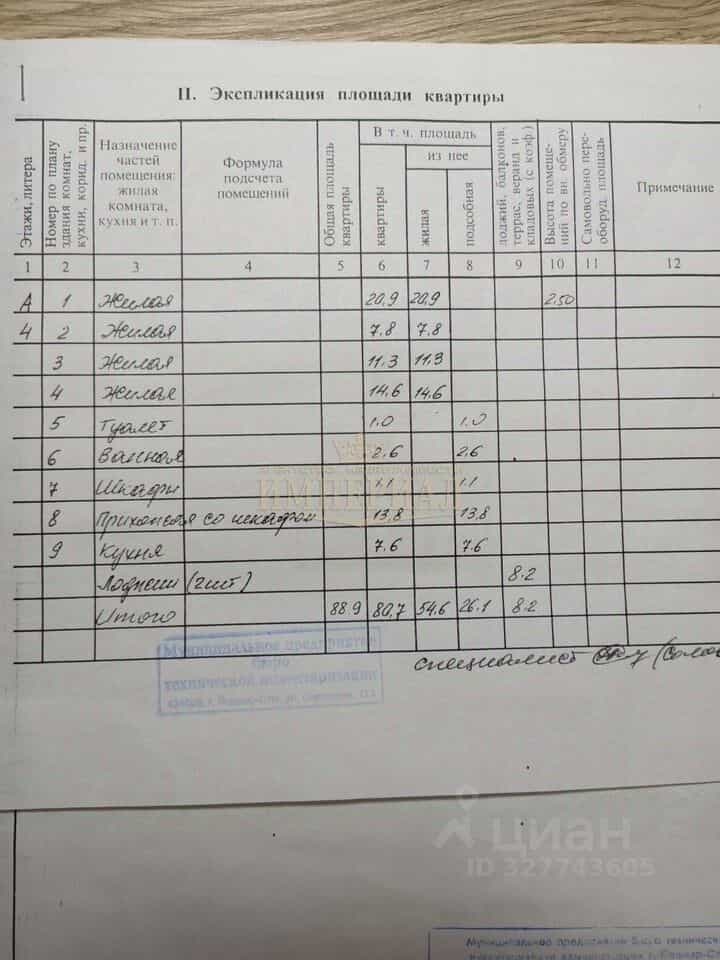 II. Экспликация площади квартиры
Этажи, литера
Номер по плану здания комнат, кухни, корид. и пр.
Назначение частей помещения: жилая комната, кухня и т. п.
Формула подсчета помещений
Общая площадь квартиры
В т. ч. площадь
из нее
квартиры
жилая
подсобная
лоджий, балконов, террас, веранд и кладовых (с коэф.)
Высота помещений по вн. обмеру
Самовольно переоборуд. площадь
Примечание
1 2 3 4 5 6 7 8 9 10 11 12
А 1 Жилая 20,9 20,9 2.50
4 2 Жилая 7.8 7.8
3 Жилая 11.3 11,3
4 Жилая 14,6 14,6
5 Туалет 1.0 1.0
6 Ванная 2,6 2,6
7 Шкафы 1.1 1.1
8 Прихожая со шкафом 13,8 13,8
9 Кухня 7.6 7.6
Лоджии (2шт) 8.2
Итого 88.9 80,7 54,6 26.1 8.2
специалист
Муниципальное предприятие
бюро
технической инвентаризации
ИМПЕРИАЛ
циан
ID 327743605
Муниципальное предприятие Бюро техническ